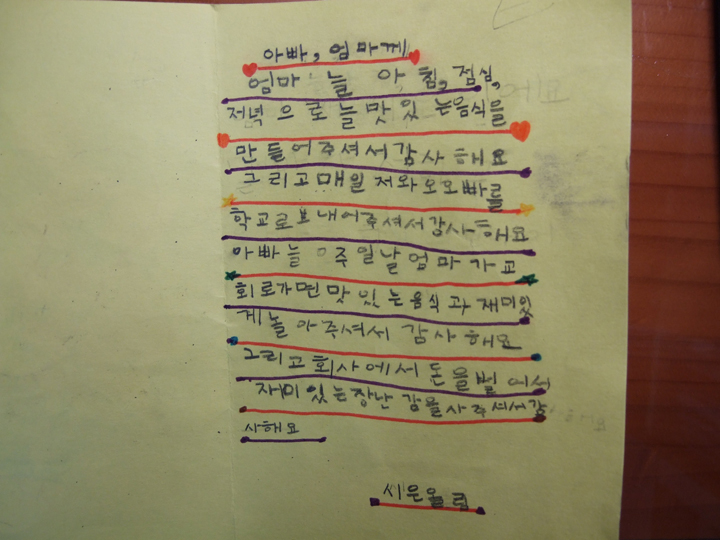 아빠, 엄마께
엄마 늘 아, 침, 점심,
저녁 으로 늘 맛 있 는음식을
만 들어주셔서 감 사 해요
그리고매일 저와오오빠를
학교로보내어주셔서감사해요
아빠늘 주일날 엄마 가 교
회로가면 맛 있 는 음식 과 재미있
게 놀 아주셔서 감사 해요
그리고회사에서 돈을벌 어서
재미 있는장난 감을사주셔서감
사해요
시은올림